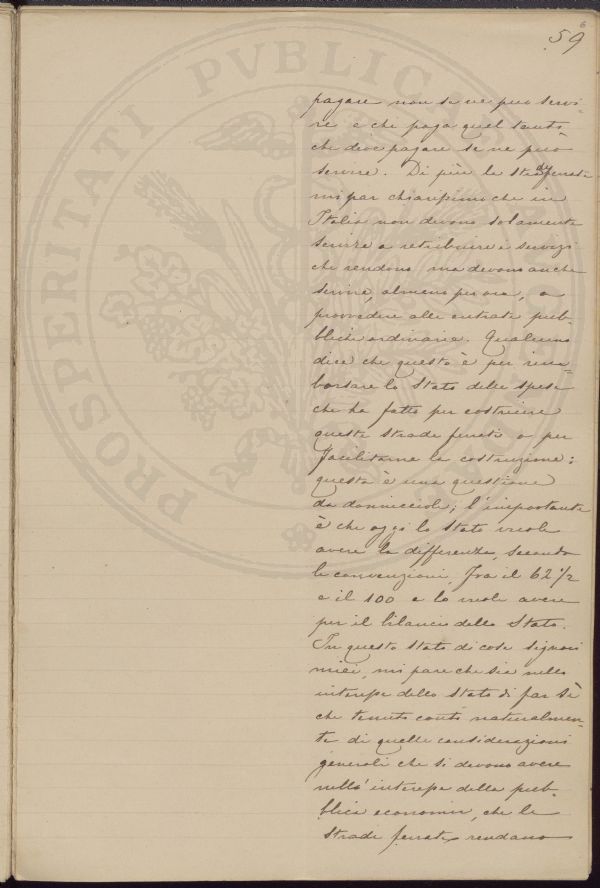 6
59
pagare non se ne può servi-
re e che paga quel tanto
che deve pagare se ne può
servire. Di più le strade ferrate
mi par chiarissimo che in
Italia non devono solamente
servire a retribuire i servizi
che rendono, ma devono anche
servire, almeno per ora, a
provvedere alle entrate pub-
bliche ordinarie. Qualcuno
dice che questo è per rim-
borsare lo Stato delle spese
che ha fatto per costruire
queste strade ferrate o per
facilitarne la costruzione:
questa è una questione
da donnicciole; l'importante
è che oggi lo Stato vuole
avere la differenza, secondo
le convenzioni, fra il 62 1/2
e il 100 e lo vuole avere
per il bilancio dello Stato.
In questo stato di cose signori
miei, mi pare che sia nello
interesse dello Stato di far sì
che tenuto conto naturalmen-
te di quelle considerazioni
generali che si devono avere
nell'interesse della pub-
blica economia, che le
strade ferrate rendano
PROSPERITATI PVBLICAE